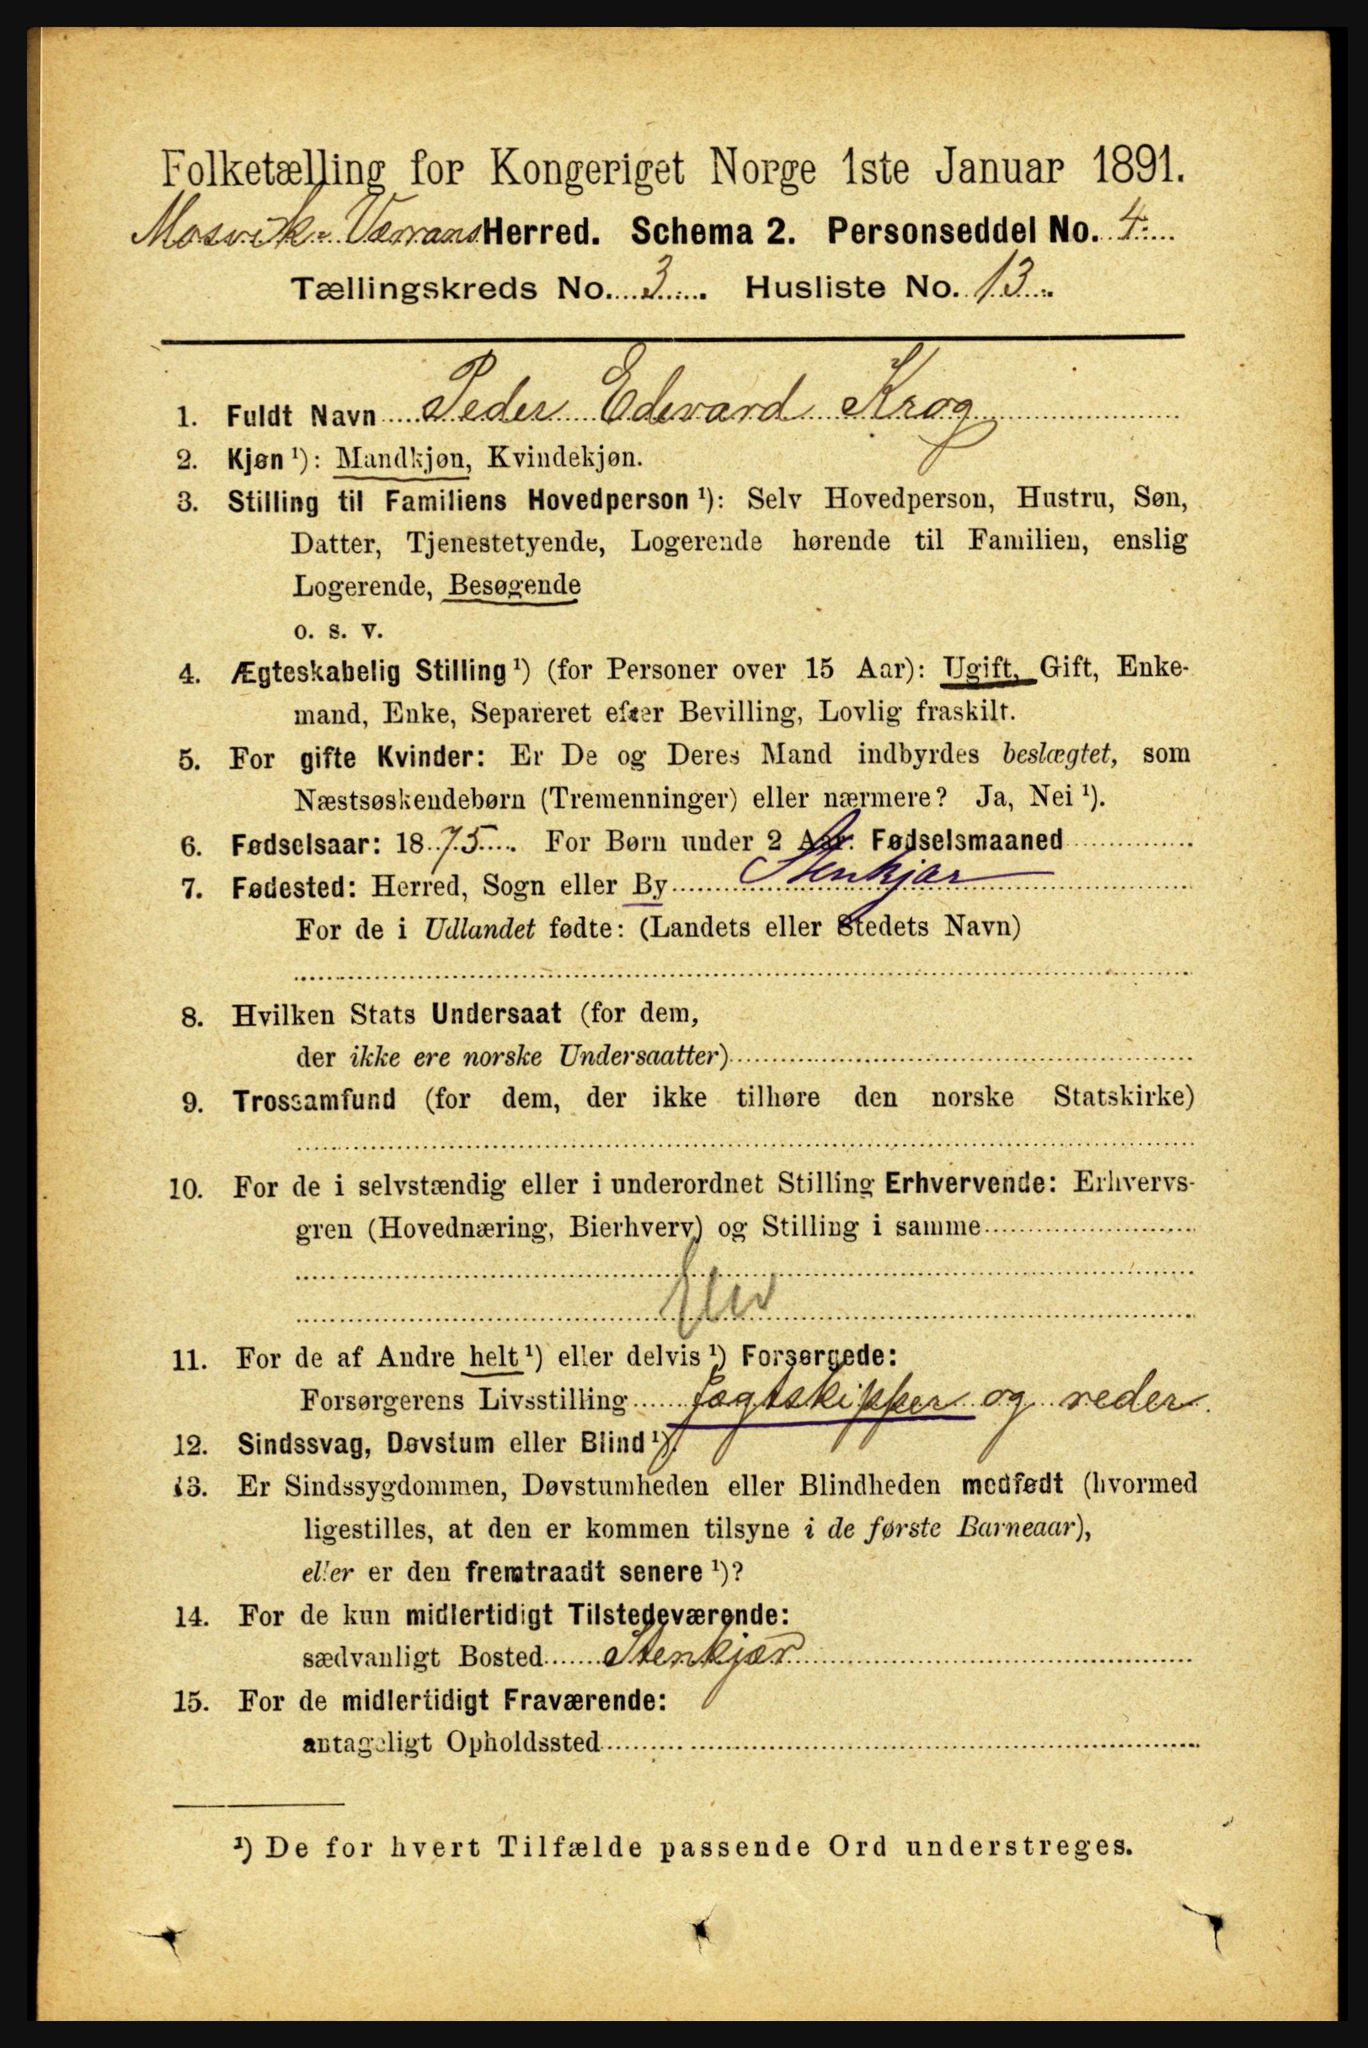 Folketælling for Kongeriget Norge 1ste Januar 1891.
Mosvik-Værrans Herred. Schema 2. Personseddel No. 4.
Tællingskreds No. 3. Husliste No. 13.
1. Fuldt Navn Peder Edevard Krog
2. Kjøn ¹): Mandkjøn, Kvindekjøn.
3. Stilling til Familiens Hovedperson ¹): Selv Hovedperson, Hustru, Søn,
Datter, Tjenestetyende, Logerende hørende til Familien, enslig
Logerende, Besøgende
o. s. v.
4. Ægteskabelig Stilling ¹) (for Personer over 15 Aar): Ugift, Gift, Enke-
mand, Enke, Separeret efter Bevilling, Lovlig fraskilt.
5. For gifte Kvinder: Er De og Deres Mand indbyrdes beslægtet, som
Næstsøskendebørn (Tremenninger) eller nærmere? Ja, Nei ¹).
6. Fødselsaar: 1875. For Børn under 2 Aar: Fødselsmaaned
7. Fødested: Herred, Sogn eller By Stenkjær
For de i Udlandet fødte: (Landets eller Stedets Navn)
8. Hvilken Stats Undersaat (for dem,
der ikke ere norske Undersaatter)
9. Trossamfund (for dem, der ikke tilhøre den norske Statskirke)
10. For de i selvstændig eller i underordnet Stilling Erhvervende: Erhvervs-
gren (Hovednæring, Bierhverv) og Stilling i samme
Elev
11. For de af Andre helt ¹) eller delvis ¹) Forsørgede:
Forsørgerens Livsstilling Jægtskipper og reder.
12. Sindssvag, Døvstum eller Blind ¹).
13. Er Sindssygdommen, Døvstumheden eller Blindheden medfødt (hvormed
ligestilles, at den er kommen tilsyne i de første Barneaar),
eller er den fremtraadt senere ¹)?
14. For de kun midlertidigt Tilstedeværende:
sædvanligt Bosted Stenkjær
15. For de midlertidigt Fraværende:
antageligt Opholdssted
¹) De for hvert Tilfælde passende Ord understreges.